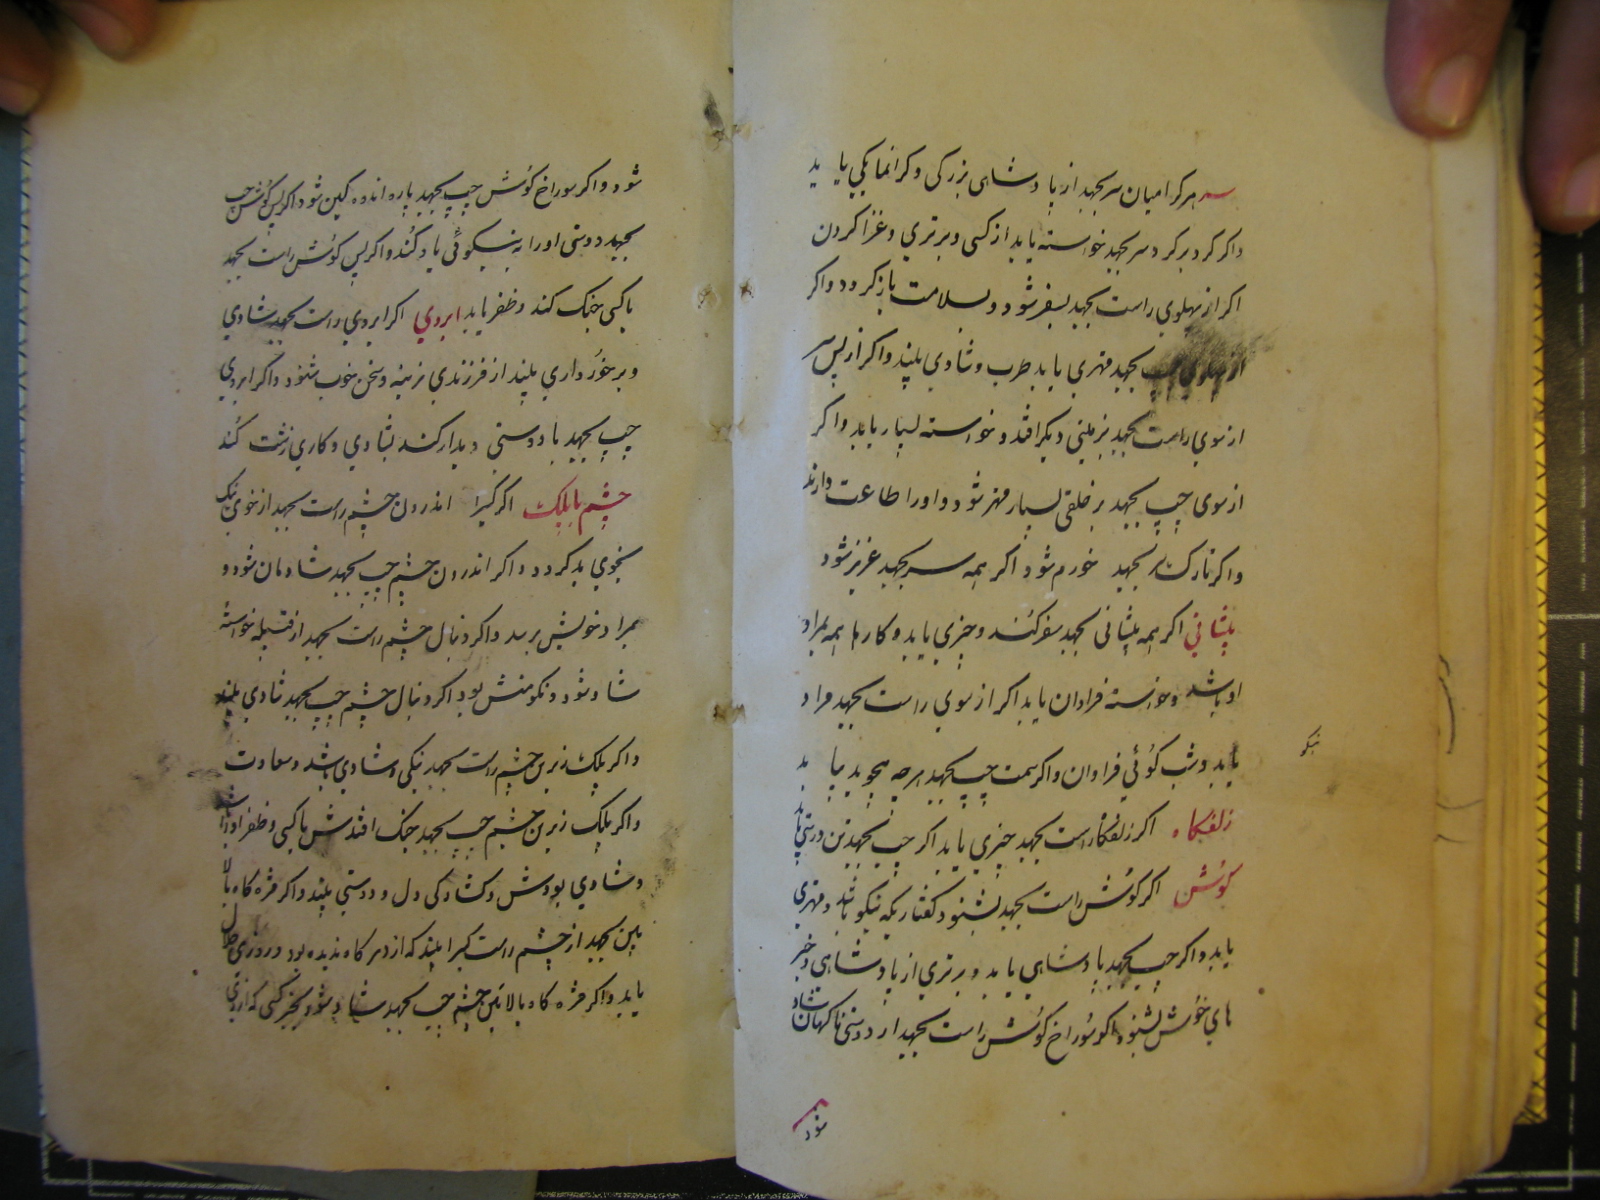 سر هر کرا میان سر بجهد از پادشاهی بزرکی و کرانمایکی یابد
و اکر کرد بر کرد سر بجهد خواسته یابد از کسی و برتری و غزا کردن
اکر از پهلوی راست بجهد بسفر شود و بسلامت باز کردد و اکر
از پهلوی چپ بجهد مهتری یابد طرب و شادی بیند و اکر از پس سر
از سوی راست بجهد بزمینی دیکر افتد و خواسته بسیار یابد و اکر
از سوی چپ بجهد بر خلقی بسیار مهتر شود و اورا طاعت دارند
و اکر تارک سر بجهد خورم شود اکر همه سر بجهد عزیز شود
پیشانی اکر همه پیشانی بجهد سفر کند و چیزی یابد و کارها همه بمراد
او باشد و خواسته فراوان یابد اکر از سوی راست بجهد مراد
یابد و شب کوئی فراوان و اکر سمت چپ بجهد هرچه بجوید بیابد
نیکو
زلفکاه اکر زلفکاه راست بجهد چیزی یابد اکر چپ بجهد تن درستی یابد
کوش اکر کوش راست بجهد بشنود کفتاریکه نیکو باشد و مهتری
یابد و اکر چپ بجهد پادشاهی یابد و برتری از پادشاهی و خبر
های خوش بشنود و اکر سوراخ کوش راست بجهد از دوستی ناکهان شاد
شود
شود و اکر سوراخ کوش چپ بجهد پاره اندوه کین شود و اکر پس کوش چپ
بجهد دوستی اورا به نیکوئی یاد کند و اکر پس کوش راست بجهد
با کسی جنک کند و ظفر یابد ابروی اکر ابروی راست بجهد شادی
و برخورداری بیند از فرزندی نرینه و سخن خوب شنود و اکر ابروی
چپ بجهد با دوستی دیدار کند بشادی و کاری زشت کند
چشم با پلک اکر کسیرا اندرون چشم راست بجهد از خوی نیک
بخوی بد کردد و اکر اندرون چشم چپ بجهد شادمان شود و
بمراد خویش برسد و اکر دنبال چشم راست بجهد از قبیله خواسته
شاد شود و نکو منش بود اکر دنبال چشم چپ بجهد شادی بیند
و اکر پلک زیرین چشم راست بجهد نیکی و شادی باشد و سعادت
و اکر پلک زیرین چشم چپ بجهد جنک افتدش با کسی و ظفر اورا باشد
و شادی بودش و کشادکی دل و دوستی بیند و اکر مژه کاه بالا
یین بجهد از چشم راست کسیرا بیند که از دیر کاه ندیده بود و روزی حلال
یابد و اکر مژه کاه بالایین چشم چپ بجهد شاد شود بخبر کسی که از وی